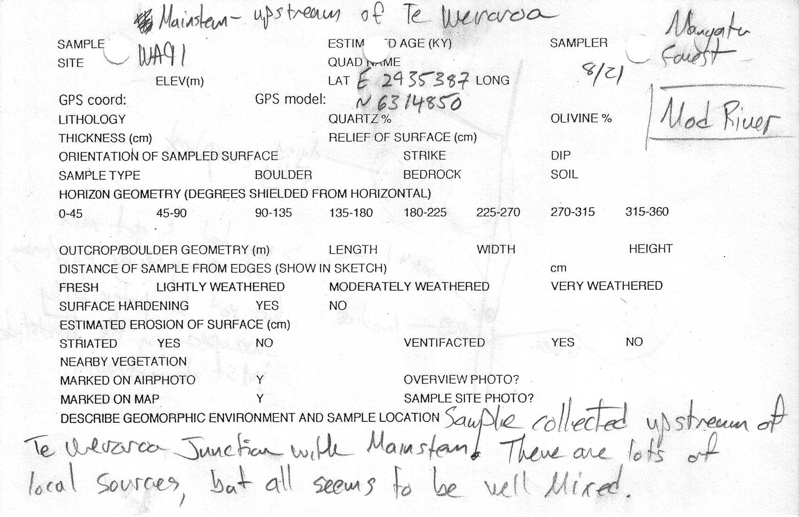 Mainstem - upstream of Te Weraroa
SAMPLE WA91 ESTIM D AGE (KY) SAMPLER
SITE QUAD NAME 8/21
ELEV(m) LAT E 2935387 LONG
GPS coord: GPS model: N 6314850
Mangatu
Forest
Mod River
LITHOLOGY QUARTZ % OLIVINE %
THICKNESS (cm) RELIEF OF SURFACE (cm)
ORIENTATION OF SAMPLED SURFACE STRIKE DIP
SAMPLE TYPE BOULDER BEDROCK SOIL
HORIZON GEOMETRY (DEGREES SHIELDED FROM HORIZONTAL)
0-45 45-90 90-135 135-180 180-225 225-270 270-315 315-360
OUTCROP/BOULDER GEOMETRY (m) LENGTH WIDTH HEIGHT
DISTANCE OF SAMPLE FROM EDGES (SHOW IN SKETCH) cm
FRESH LIGHTLY WEATHERED MODERATELY WEATHERED VERY WEATHERED
SURFACE HARDENING YES NO
ESTIMATED EROSION OF SURFACE (cm)
STRIATED YES NO VENTIFACTED YES NO
NEARBY VEGETATION
MARKED ON AIRPHOTO Y OVERVIEW PHOTO?
MARKED ON MAP Y SAMPLE SITE PHOTO?
DESCRIBE GEOMORPHIC ENVIRONMENT AND SAMPLE LOCATION Sample collected upstream of
Te Weraroa Junction with Mainstem. There are lots of
local sources, but all seems to be well Mixed.